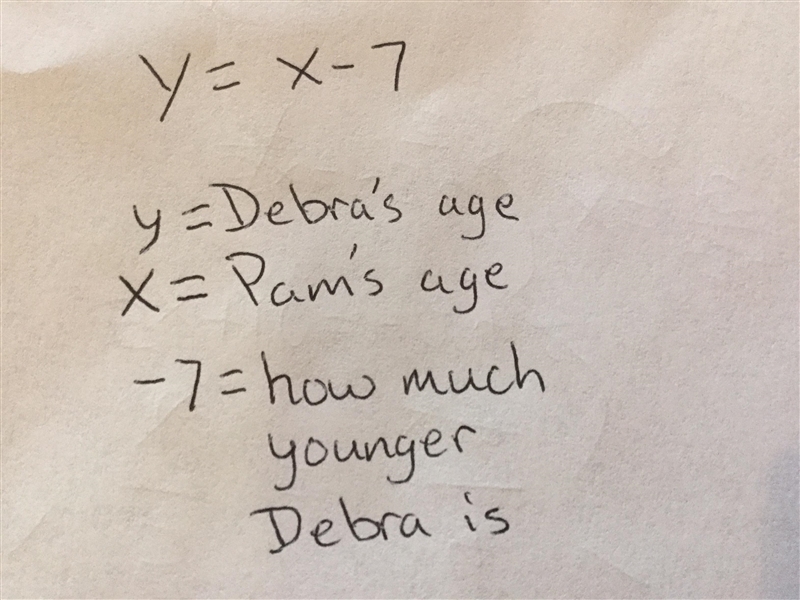 y = x - 7
y = Debra's age
x = Pam's age
-7 = how much
younger
Debra is